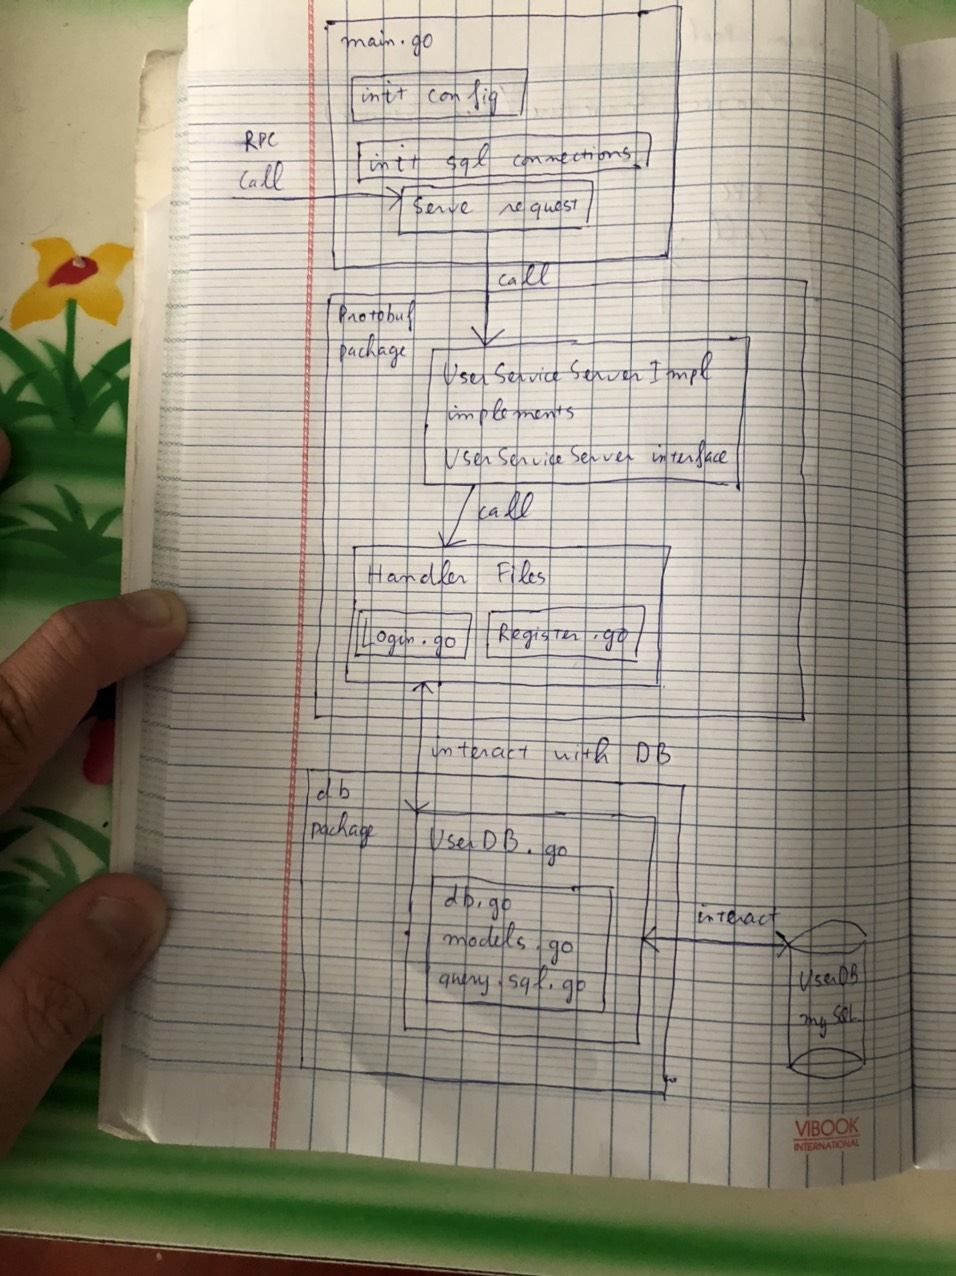 main.go
init config
RPC
Call
init sql connections
Serve request
call
Protobuf
package
UserServiceServerImpl
implements
UserServiceServer interface
call
Handler Files
Login.go
Register.go
interact with DB
db
package
UserDB.go
db.go
models.go
query.sql.go
interact
UserDB
mySQL
VIBOOK
INTERNATIONAL